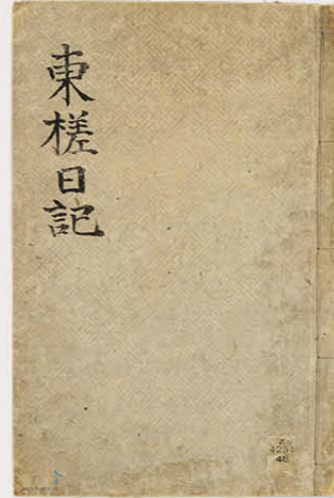 東槎日記